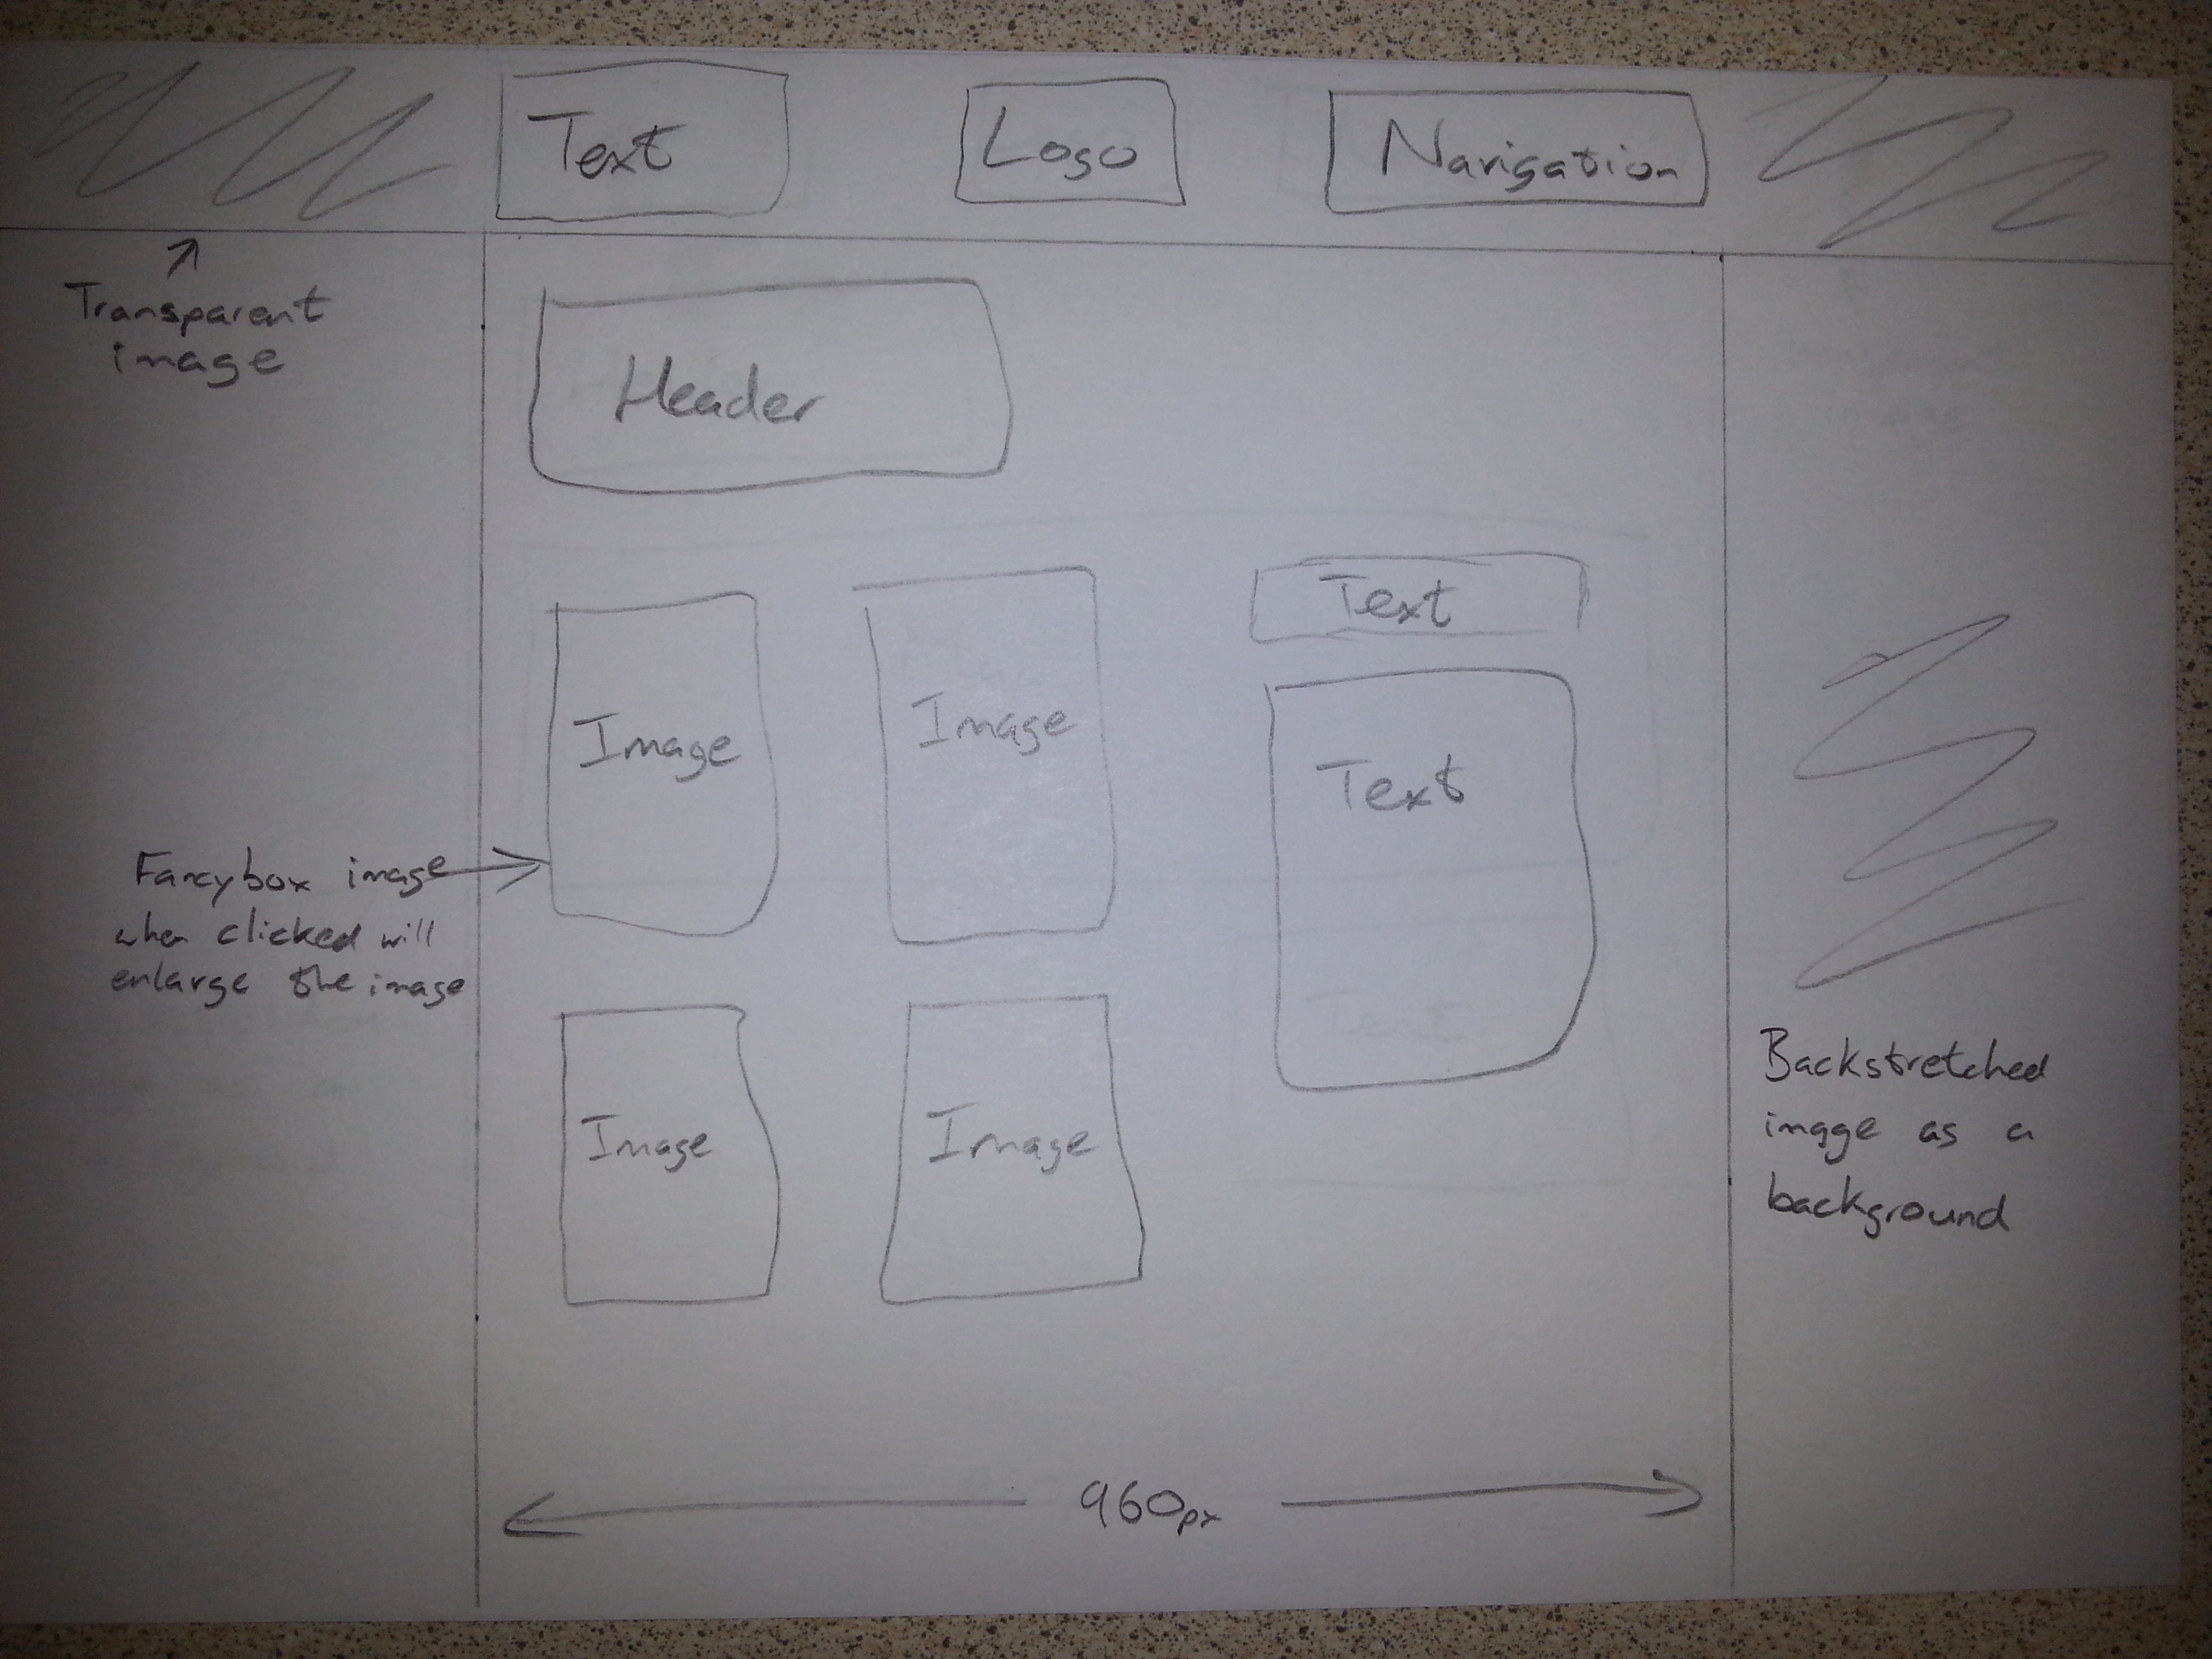 Text
Logo
Navigation
Transparent
image
Header
Text
Image
Image
Text
Fancybox image
when clicked will
enlarge the image
Image
Image
Backstretched
image as a
background
960px